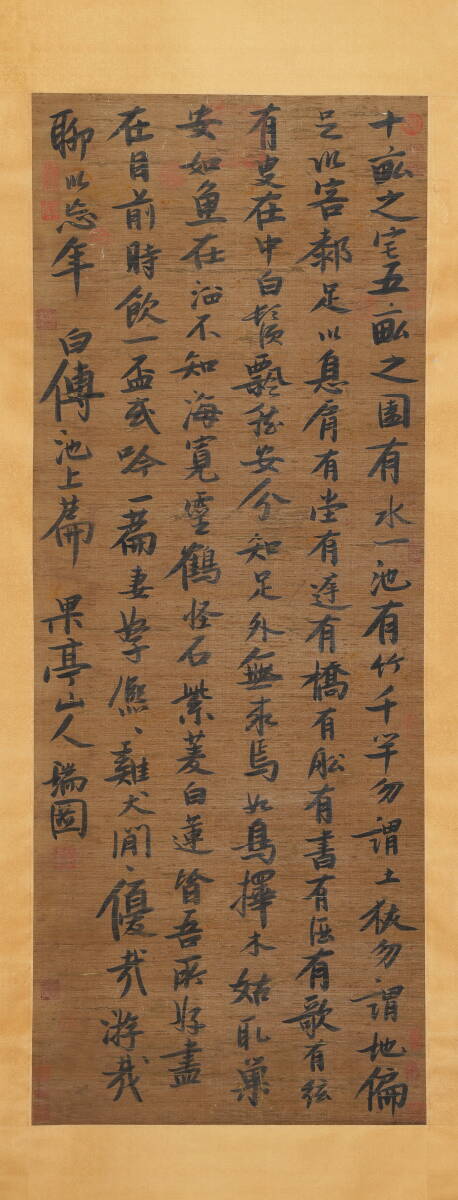 十畝之宅五畝之園有水一池有竹千竿勿謂土狹勿謂地偏
足以容膝足以息肩有堂有廷有橋有船有書有酒有歌有弦
有叟在中白鬚飄然安分知足外無求焉如鳥擇木姑取巢
安如魚在沼不知海寬靈鶴怪石紫菱白蓮皆吾所好盡
在目前時飲一盃或吟一篇妻孥熙〻雞犬閒〻優哉游哉
聊以忘年 白傅池上篇 果亭山人瑞圖